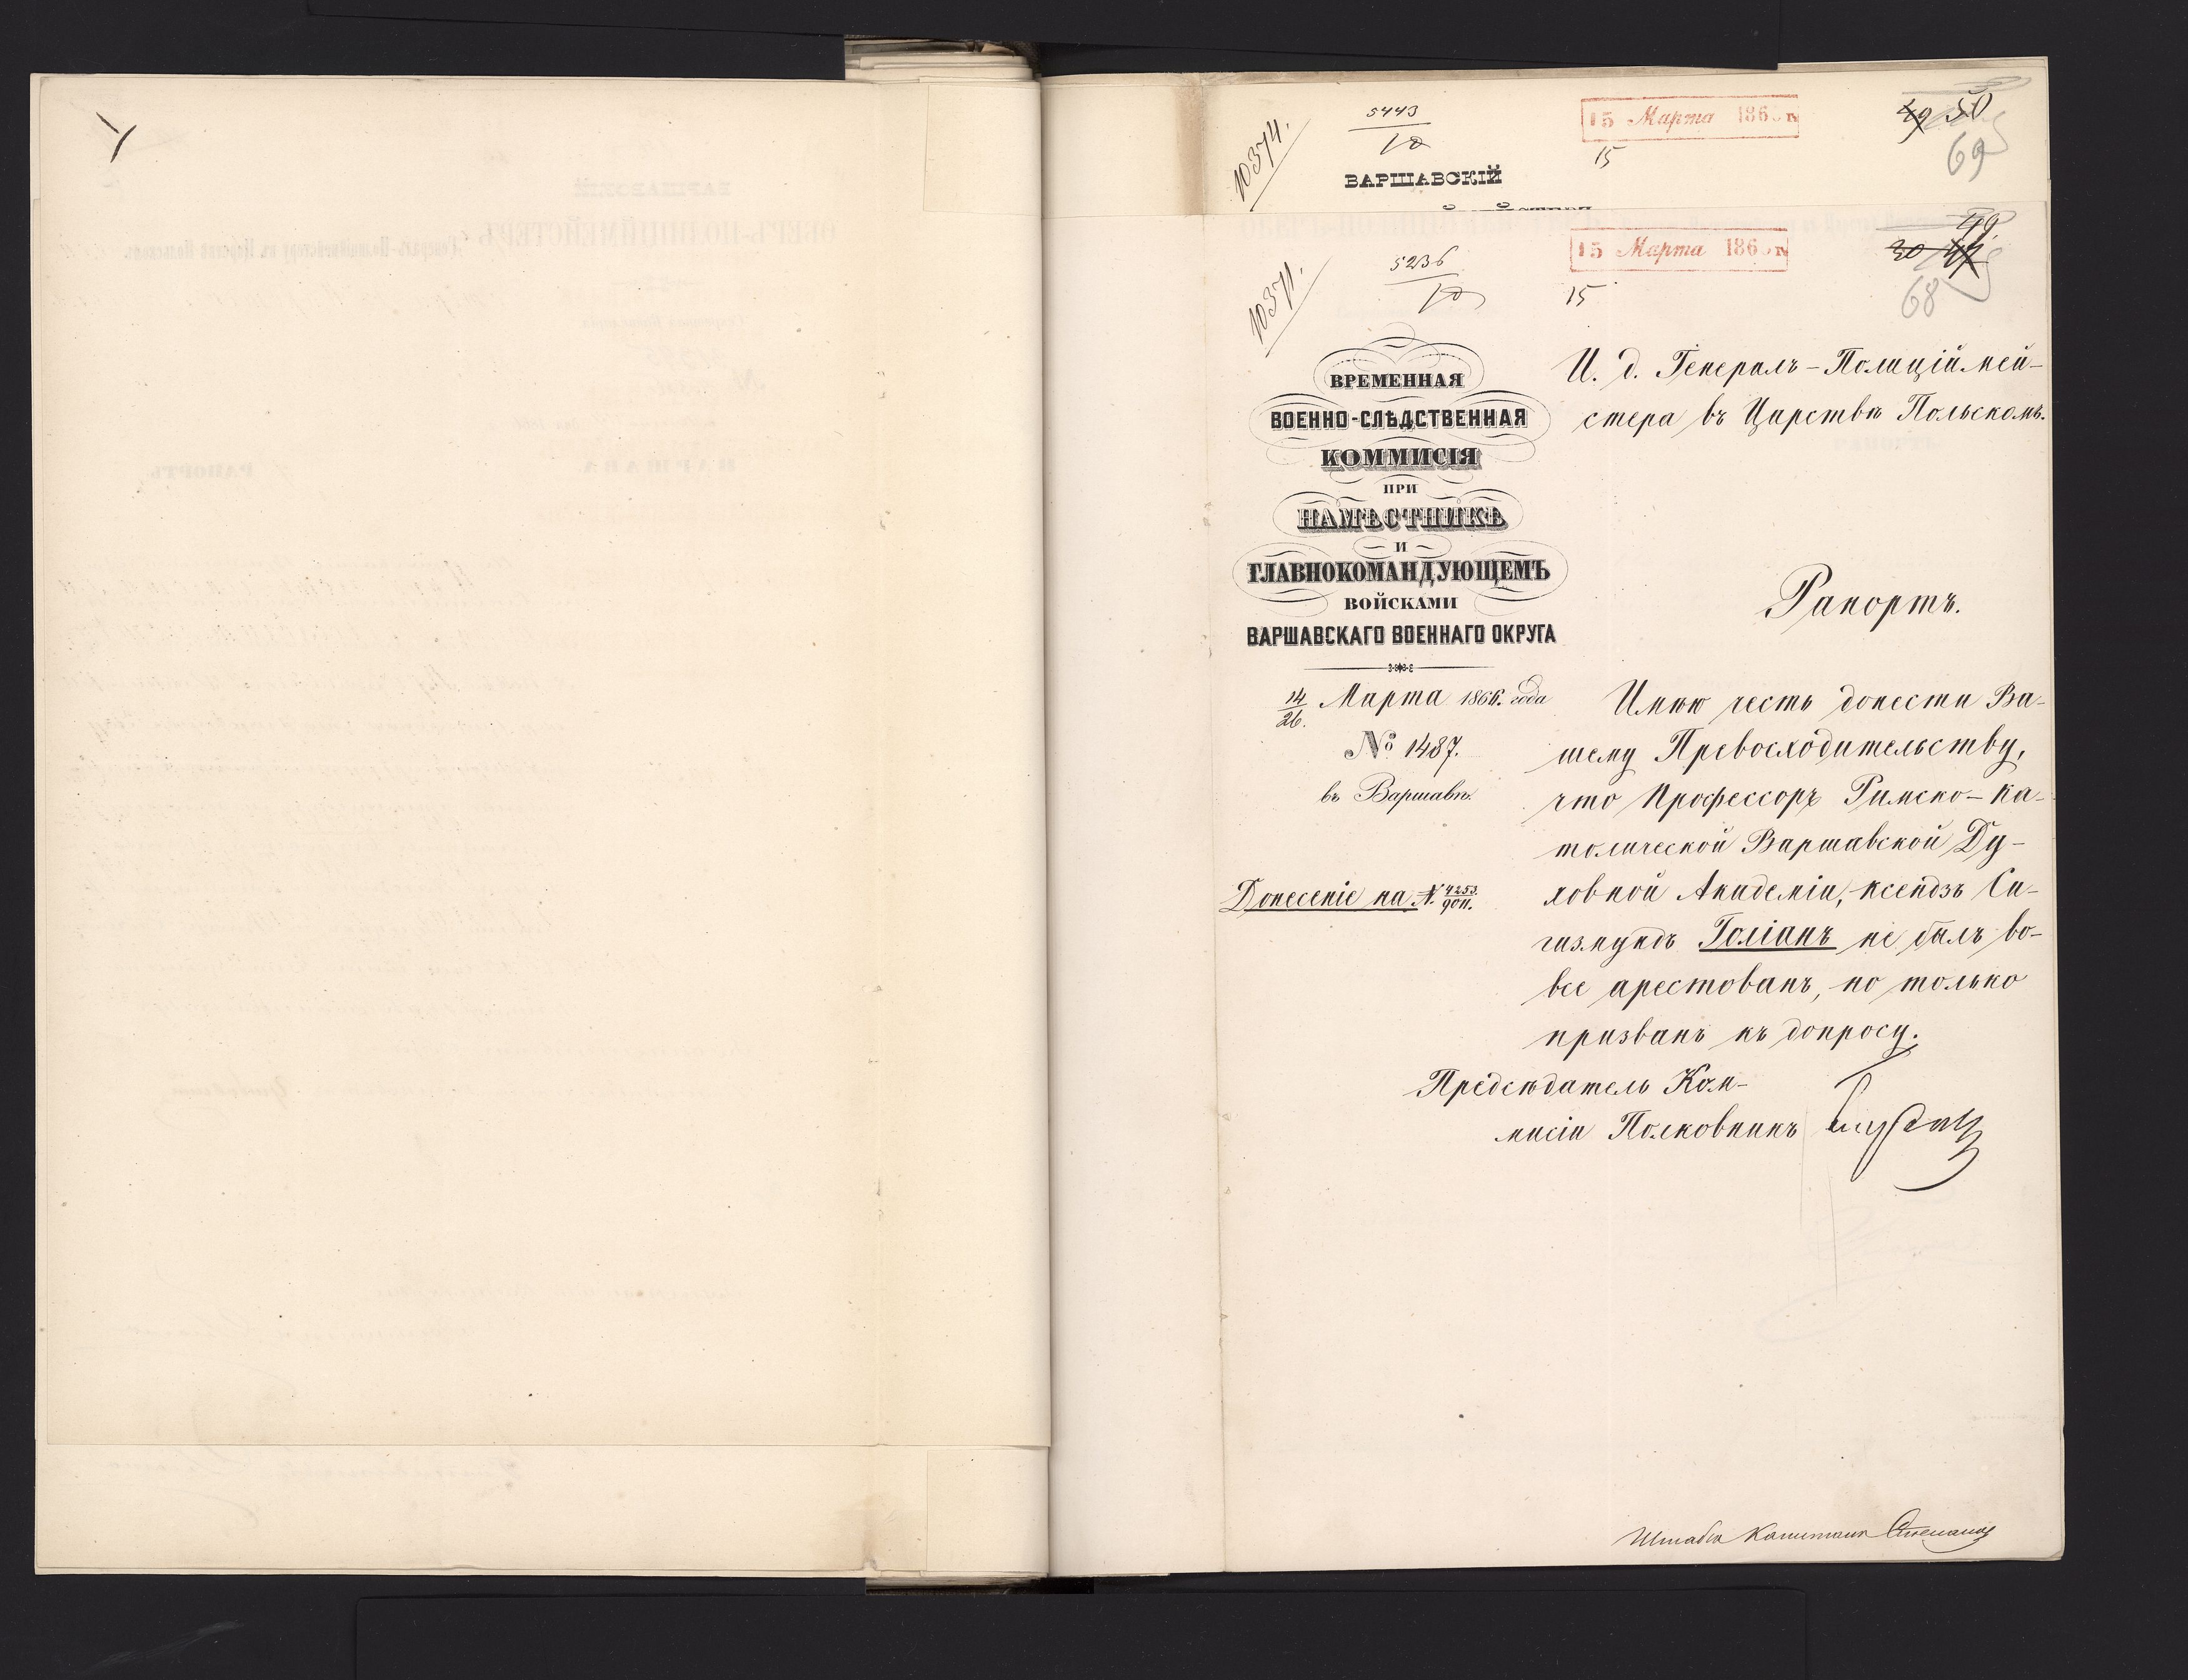 10374.
5443
10
15 Марта 186
15
49 50
69
ВАРШАВСКІЙ
10371.
5236
10
15 Марта 186
15
49.
30
68
ВРЕМЕННАЯ
ВОЕННО-СЛѢДСТВЕННАЯ
КОММИСІЯ
ПРИ
НАМѢСТНИКѢ
И
ГЛАВНОКОМАНДУЮЩЕМЪ
ВОЙСКАМИ
ВАРШАВСКАГО ВОЕННАГО ОКРУГА
14/26. Марта 1866. года
№ 1487.
въ Варшавѣ.
Донесеніе на N. 4253/9011.
И. д. Генералъ-Полиціймей-
стера въ Царствѣ Польскомъ.
Рапортъ.
Имѣю честь донести Ва-
шему Превосходительству,
что Профессоръ Римско-ка-
толической Варшавской Ду-
ховной Академіи, ксендзъ Си-
гизмундъ Голіанъ не былъ во-
все арестованъ, но только
призванъ къ допросу.
Предсѣдатель Ком-
мисіи Полковникъ
Штабсъ Капитанъ Степановъ